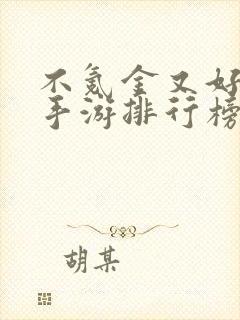 不氪金又好
手游排行榜
胡某